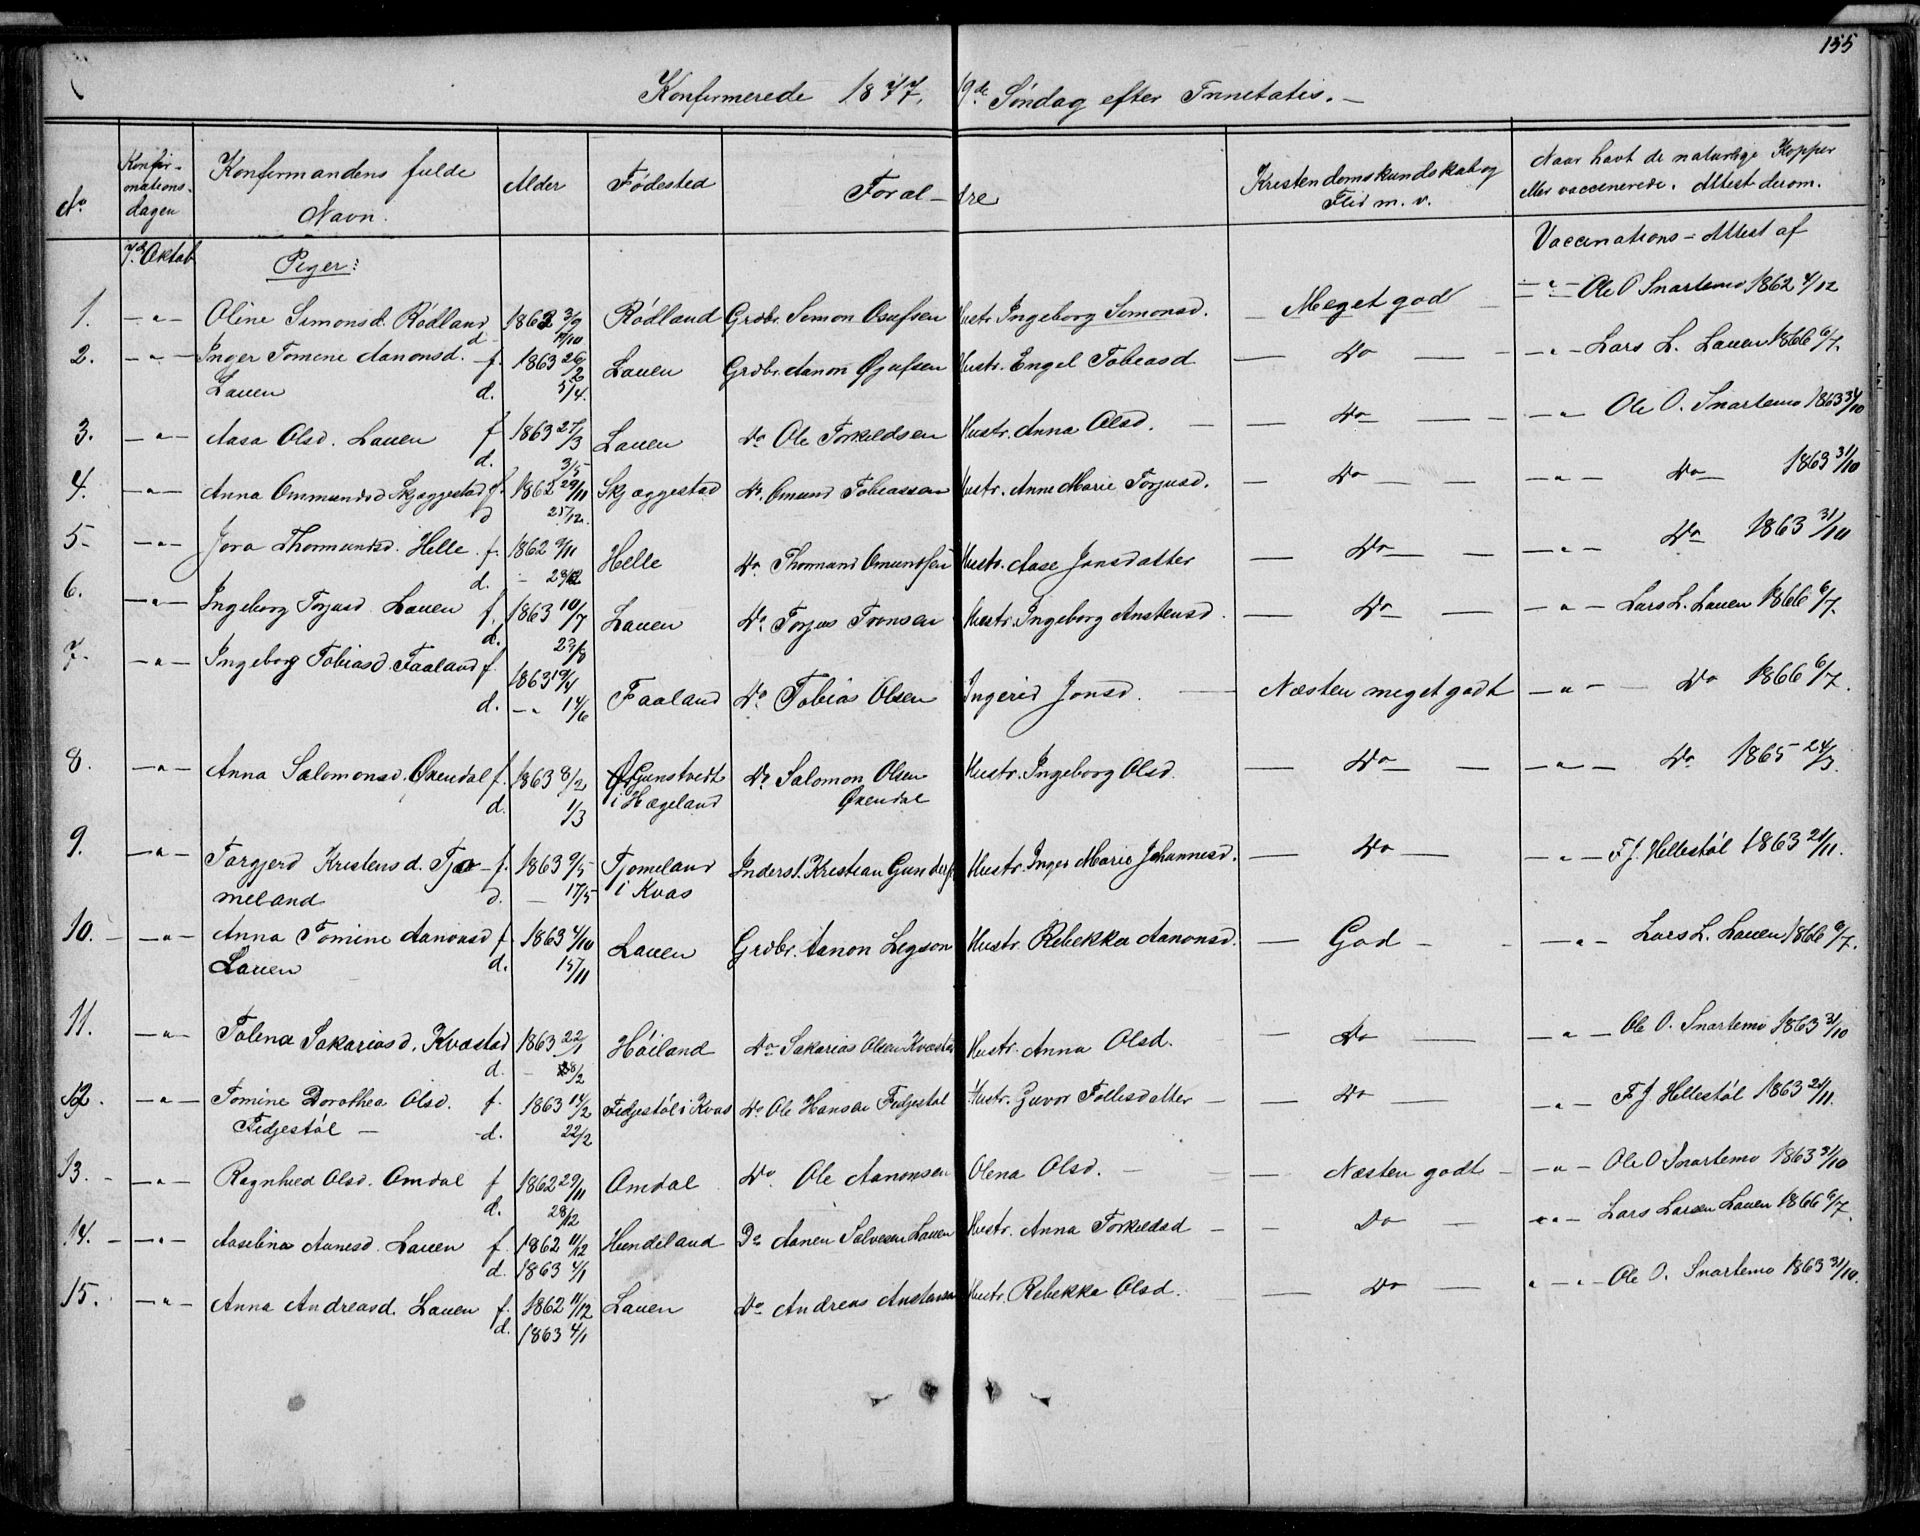 155
Konfirmerede 1877, 19de Søndag efter Trinitatis. —
No | Konfir-mations-dagen | Konfirmandens fulde Navn. | Alder | Fødested | Foral-dre | Kristendomskundskab og Flid m. v. | Naar havt de naturlige Kopper eller vaccinerede. Attest derom.
7de Oktob | Piger: | Vaccinations-Attest af
1. — " — Oline Simonsd. Rødland | 1862 3/9 | Rødland | Grdbr. Simon Osufsen | Hustr. Ingeborg Simonsd. | Meget god | — " — Ole O Snartemo 1862 4/12
d. 19/10
2. — " — Inger Tomine Aanonsd. f. | 1863 26/2 | Lauen | Grdbr. Aanon Øjufsen | Hustr. Engel Tobiasd | Do | — " — Lars L. Lauen 1866 6/7.
Lauen d. 5/4.
3. — " — Aasa Olsd. Lauen f | 1863 27/3 | Lauen | Do Ole Torkildsen | Hustr. Anna Olsd. | Do | — " — Ole O. Snartemo 1863 31/10
d. 3/5
4. — " — Anna Ommundsd Skjæggestad f. | 1862 29/11 | Skjæggestad | Do. Omund Tobiassen | Hustr. Anne Marie Torjusd. | Do | — " — Do 1863 31/10
d 25/12.
5. — " — Jora Thormundsd. Helle f. | 1862 9/11 | Helle | Do. Thormand Omundsen | Hustr. Aase Jonsdatter | Do | — " — Do 1863 31/10
d. — 28/12
6. — " — Ingeborg Torjusd. Lauen f. | 1863 10/7 | Lauen | Do. Torjus Tronsen | Hustr. Ingeborg Anstensd. | Do | — " — Lars L. Lauen 1866 6/7.
d. 23/8
7. — " — Ingeborg Tobiasd. Faaland f. | 1863 19/4 | Faaland | Do Tobias Olsen | Ingerid Jonsd. | Næsten meget godt | — " — Do 1866 6/7.
d. — " 14/6
8. — " — Anna Salomonsd. Øxendal f. | 1863 8/2 | Gunstvedt i Hægeland | Do Salomon Olsen Øxendal | Hustr. Ingeborg Olsd. | Do | — " — Do 1865 24/3.
d. 1/3
9. — " — Torgjerd Kristensd. Tjo- f. | 1863 9/5 | Tjomeland i Kvas | Inderst. Kristian Gunders | Hustr. Inger Marie Johannesd. | Do | — " — F J. Hellestøl 1863 21/11.
meland d. — 17/5
10. — " — Anna Tomine Aanonsd f. | 1863 4/10 | Lauen | Grdbr. Aanon Legson | Hustr. Rebekka Aanonsd. | God | — " — Lars L. Lauen 1866 6/7.
Lauen d. 15/11
11. — " — Tolena Sakariasd. Kvæstad | 1863 22/1 | Høiland | Do Sakarias Olsen Kvæstad | Hustr. Anna Olsd. | Do | " — Ole O. Snartemo 1863 31/10
d. — 8/2
12. — " — Tomine Dorothea Olsd. f. | 1863 14/2 | Fidjestøl i Kvas | Do Ole Hansen Fidjestøl | Hustr. Guvor Follesdatter | Do | — " — F J Hellestøl 1863 21/11.
Fidjestøl — d. 22/2
13. — " — Ragnhild Olsd. Omdal f | 1862 29/11 | Omdal | Do Ole Aanonsen | Olena Olsd. | Næsten godt | — " — Ole O Snartemo 1863 31/10
d. 28/12
14. — " — Aaselina Aanesd. Lauen f | 1862 11/12 | Hundeland | Do Aanen Salvesen Lauen | Hustr. Anna Torkildsd | Do | " — Lars Larsen Lauen 1866 6/7.
d. 1863 4/1
15. — " — Anna Andreasd. Lauen f. | 1862 11/12 | Lauen | Do Andreas Anstensen | Hustr. Rebekka Olsd. | Do | " — " — Ole O. Snartemo 1863 31/10.
d. 1863 4/1